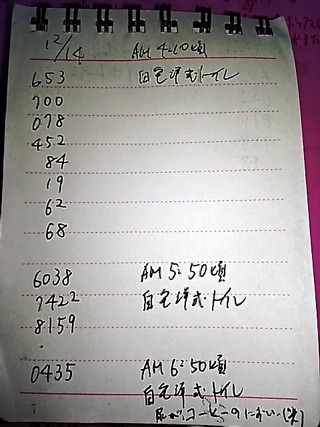 12/14 AM 4:10頃
653 自宅洋式トイレ
700
078
452
84
19
62
68
6038 AM 5:50頃
7422 自宅洋式トイレ
8159
.
0435 AM 6:50頃
自宅洋式トイレ
尿が、コーヒーのにおい(笑)